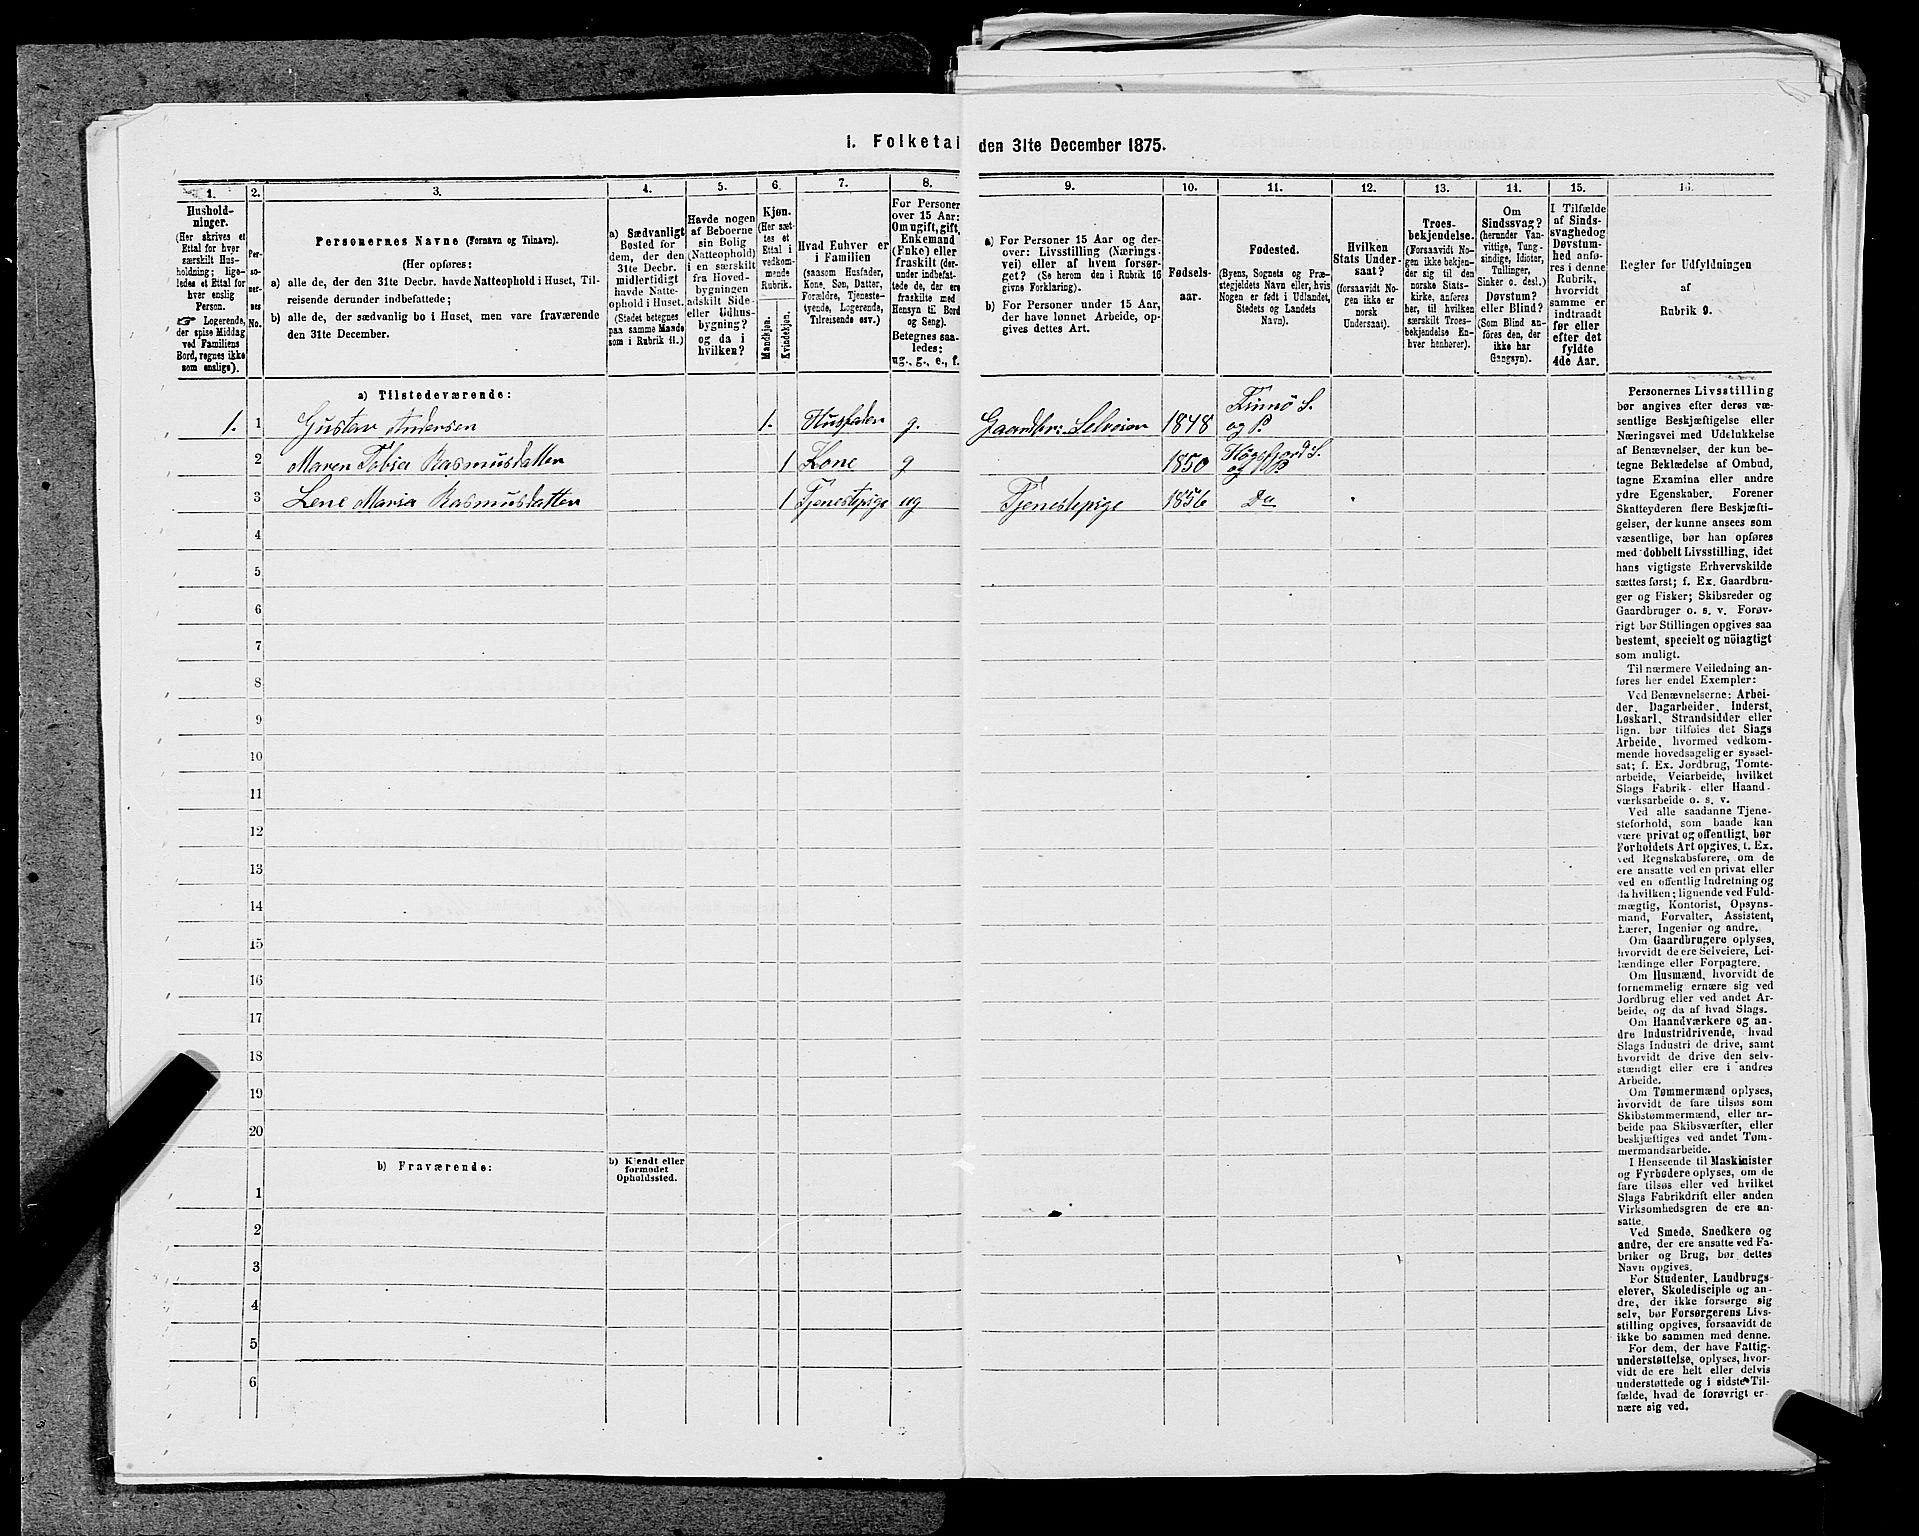 1. Folketal den 31te December 1875.
1.
2.
3.
4.
5.
6.
7.
8.
9.
10.
11.
12.
13.
14.
15.
16.
Hushold-
ninger.
(Her skrives et
Ettal for hver
særskilt Hus-
holdning; lige-
ledes et Ettal for
hver enslig
Person.
☞ Logerende,
der spise Middag
ved Familiens
Bord, regnes ikke
som enslige).
Per-
so-
ner-
nes
No.
Personernes Navne (Fornavn og Tilnavn).
(Her opføres:
a) alle de, der den 31te Decbr. havde Natteophold i Huset, Til-
reisende derunder indbefattede;
b) alle de, der sædvanlig bo i Huset, men vare fraværende
den 31te December.
a) Sædvanligt
Bosted for
dem, der den
31te Decbr.
midlertidigt
havde Natte-
ophold i Huset.
(Stedet betegnes
paa samme Maade
som i Rubrik 11.)
Havde nogen
af Beboerne
sin Bolig
(Natteophold)
i en særskilt
fra Hoved-
bygningen
adskilt Side-
eller Udhus-
bygning?
og da i
hvilken?
Kjøn.
(Her sæt-
tes et
Ettal i
vedkom-
mende
Rubrik.
Mandkjøn.
Kvindekjøn.
Hvad Enhver er
i Familien
(saasom Husfader,
Kone, Søn, Datter,
Forældre, Tjeneste-
tyende, Logerende,
Tilreisende osv.)
For Personer
over 15 Aar:
Om ugift, gift,
Enkemand
(Enke) eller
fraskilt (der-
under indbefat-
tede de, der ere
fraskilte med
Hensyn til Bord
og Seng).
Betegnes saa-
ledes:
ug., g., e., f.
a) For Personer 15 Aar og der-
over: Livsstilling (Nærings-
vei) eller af hvem forsør-
get? (Se herom den i Rubrik 16
givne Forklaring).
b) For Personer under 15 Aar,
der have lønnet Arbeide, op-
gives dettes Art.
Fødsels-
aar.
Fødested.
(Byens, Sognets og Præ-
stegjeldets Navn eller, hvis
Nogen er født i Udlandet,
Stedets og Landets
Navn).
Hvilken
Stats Under-
saat?
(forsaavidt No-
gen ikke er
norsk
Undersaat).
Troes-
bekjendelse.
(Forsaavidt No-
gen ikke bekjen-
der sig til den
norske Stats-
kirke, anføres
her, til hvilken
særskilt Troes-
bekjendelse En-
hver henhører).
Om
Sindssvag?
(herunder Van-
vittige, Tung-
sindige, Idioter,
Tullinger,
Sinker o. desl.)
Døvstum?
eller Blind?
(Som Blind an-
føres den, der
ikke har
Gangsyn).
I Tilfælde
af Sinds-
svaghed og
Døvstum-
hed anfø-
res i denne
Rubrik,
hvorvidt
samme er
indtraadt
før eller
efter det
fyldte
4de Aar.
Regler for Udfyldningen
af
Rubrik 9.
a) Tilstedeværende:
1. 1 Gustav Andersen 1. Husfader g. Gaardbr: Selveier 1848 Finnö S.
og P.
2 Maren Tobia Rasmusdatter 1 Kone g 1850 Högsfjord S.
og P
3 Lene Maria Rasmusdatter 1 Tjenestepige ug Tjenestepige 1856 Do
4
5
6
7
8
9
10
11
12
13
14
15
16
17
18
19
20
b) Fraværende:
b) Kjendt eller
formodet
Opholdssted.
1
2
3
4
5
6
Personernes Livsstilling
bør angives efter deres væ-
sentlige Beskjæftigelse eller
Næringsvei med Udelukkelse
af Benævnelser, der kun be-
tegne Beklædelse af Ombud,
tagne Examina eller andre
ydre Egenskaber. Forener
Skatteyderen flere Beskjæfti-
gelser, der kunne ansees som
væsentlige, bør han opføres
med dobbelt Livsstilling, idet
hans vigtigste Erhvervskilde
sættes først; f. Ex. Gaardbru-
ger og Fisker; Skibsreder og
Gaardbruger o. s. v. Forøv-
rigt bør Stillingen opgives saa
bestemt, specielt og nöiagtigt
som muligt.
Til nærmere Veiledning an-
føres her endel Exempler:
Ved Benævnelserne: Arbei-
der, Dagarbeider, Inderst,
Løskarl, Strandsidder eller
lign. bør tilføies det Slags
Arbeide, hvormed vedkom-
mende hovedsagelig er syssel-
sat; f. Ex. Jordbrug, Tomte-
arbeide, Veiarbeide, hvilket
Slags Fabrik- eller Haand-
værksarbeide o. s. v.
Ved alle saadanne Tjene-
steforhold, som baade kan
være privat og offentligt, bør
Forholdets Art opgives, f. Ex.
ved Regnskabsførere, om de
ere ansatte ved en privat eller
ved en offentlig Indretning og
da hvilken; lignende ved Fuld-
mægtig, Kontorist, Opsyns-
mand, Forvalter, Assistent,
Lærer, Ingeniør og andre.
Om Gaardbrugere oplyses,
hvorvidt de ere Selveiere, Lei-
lændinge eller Forpagtere.
Om Husmænd, hvorvidt de
fornemmelig ernære sig ved
Jordbrug eller ved andet Ar-
beide, og da af hvad Slags.
Om Haandværkere og an-
dre Industridrivende, hvad
Slags Industri de drive, samt
hvorvidt de drive den selv-
stændigt eller ere i andres
Arbeide.
Om Tømmermænd oplyses,
hvorvidt de fare tilsøs som
Skibstømmermænd, eller ar-
beide paa Skibsværfter, eller
beskjæftiges ved andet Tøm-
mermandsarbeide.
I Henseende til Maskinister
og Fyrbødere oplyses, om de
fare tilsøs eller ved hvilket
Slags Fabrikdrift eller anden
Virksomhedsgren de ere an-
satte.
Ved Smede, Snedkere og
andre, der ere ansatte ved Fa-
briker og Brug, bør dettes
Navn opgives.
For Studenter, Landbrugs-
elever, Skoledisciple og an-
dre, der ikke forsørge sig
selv, bør Forsørgerens Livs-
stilling opgives, forsaavidt de
ikke bo sammen med denne.
For dem, der have Fattig-
understøttelse, oplyses, hvor-
vidt de ere helt eller delvis
understøttede og i sidste Til-
fælde, hvad de forøvrigt er-
nære sig ved.